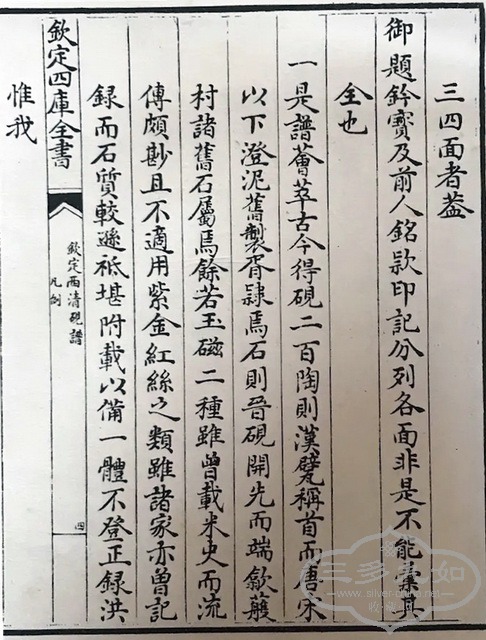 三四面者蓋
御題鈐寶及前人銘款印記分列各面非是不能
全也
一是譜薈萃古今得硯二百陶則漢甓稱首而唐宋
以下澄泥舊製胥隷焉石則晉硯開先而端歙蘄
村諸舊石屬焉餘若玉磁二種雖曾載米史而流
傳頗尠且不適用紫金紅絲之類雖諸家亦曾記
録而石質較遜祗堪附載以備一體不登正録洪
惟我
欽定四庫全書
欽定西清硯譜
凡例
四
三多九如
www.silver-coins.net
收藏